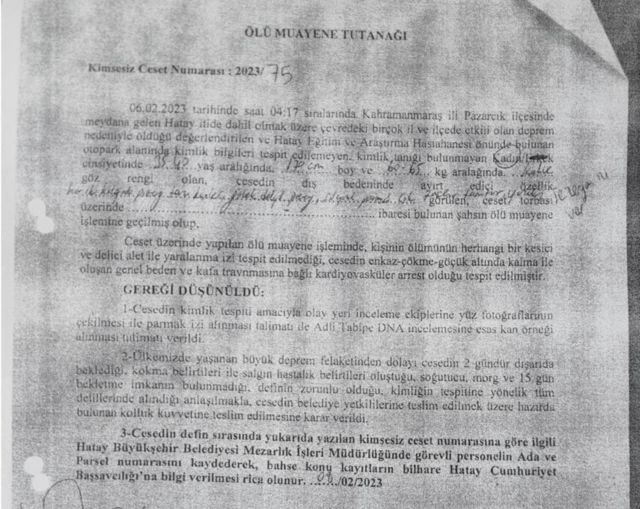 ÖLÜ MUAYENE TUTANAĞI
Kimsesiz Ceset Numarası : 2023/75
06.02.2023 tarihinde saat 04:17 sıralarında Kahramanmaraş ili Pazarcık ilçesinde
meydana gelen Hatay ilide dahil olmak üzere çevredeki birçok il ve ilçede etkili olan deprem
nedeniyle öldüğü değerlendirilen ve Hatay Eğitim ve Araştırma Hastahanesi önünde bulunan
otopark alanında kimlik bilgileri tespit edilemeyen, kimlik tanığı bulunmayan Kadın/
cinsiyetinde yaş aralığında, boy ve kg aralağında,
göz rengi olan, cesedin dış bedeninde ayırt edici özellik
görülen, ceset torbası
üzerinde ibaresi bulunan şahsın ölü muayene
işlemine geçilmiş olup,
Ceset üzerinde yapılan ölü muayene işleminde, kişinin ölümünün herhangi bir kesici
ve delici alet ile yaralanma izi tespit edilmediği, cesedin enkaz-çökme-göçük altında kalma ile
oluşan genel beden ve kafa travmasına bağlı kardiyovasküler arrest olduğu tespit edilmiştir.
GEREĞİ DÜŞÜNÜLDÜ:
1-Cesedin kimlik tespiti amacıyla olay yeri inceleme ekiplerine yüz fotoğraflarının
çekilmesi ile parmak izi alınması talimatı ile Adli Tabipe DNA incelemesine esas kan örneği
alınması talimatı verildi.
2-Ülkemizde yaşanan büyük deprem felaketinden dolayı cesedin 2 gündür dışarıda
beklediği, kokma belirtileri ile salgın hastalık belirtileri oluştuğu, soğutucu, morg ve 15 gün
bekletme imkanın bulunmadığı, definin zorunlu olduğu, kimliğin tespitine yönelik tüm
delillerinde alındığı anlaşılmakla, cesedin belediye yetkililerine teslim edilmek üzere hazırda
bulunan kolluk kuvvetine teslim edilmesine karar verildi.
3-Cesedin defin sırasında yukarıda yazılan kimsesiz ceset numarasına göre ilgili
Hatay Büyükşehir Belediyesi Mezarlık İşleri Müdürlüğünde görevli personelin Ada ve
Parsel numarasını kaydederek, bahse konu kayıtların bilhare Hatay Cumhuriyet
Başsavcılığı'na bilgi verilmesi rica olunur. /02/2023